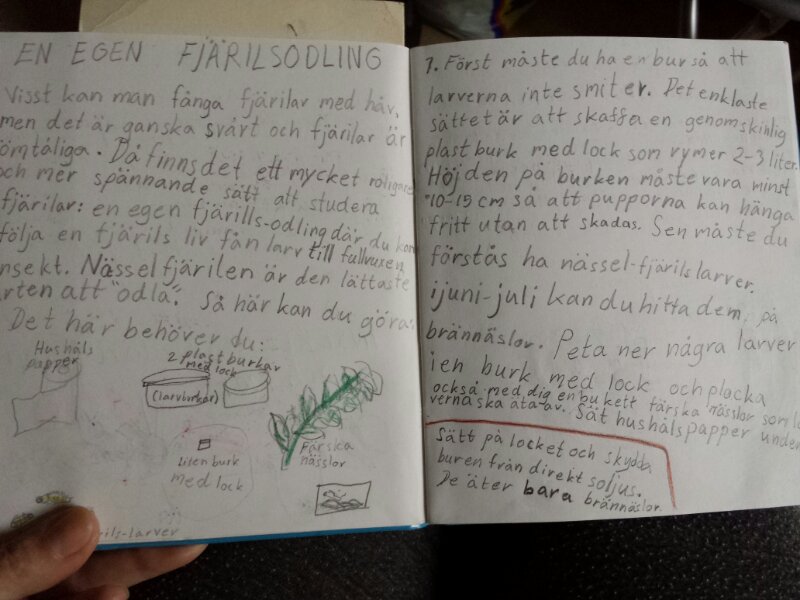 EN EGEN FJÄRILSODLING
Visst kan man fånga fjärilar med håv,
men det är ganska svårt och fjärilar är
ömtåliga. Då finns det ett mycket roligare
och mer spännande sätt att studera
fjärilar: en egen fjärills-odling där du kan
följa en fjärils liv fån larv till fullvuxen
insekt. Nässelfjärilen är den lättaste
arten att "odla". Så här kan du göra:
Det här behöver du:
Hushåls
papper
2 plastburkar
med lock
(larvburkar)
Liten burk
med lock
Färska
nässlor
rils-larver
1. Först måste du ha en bur så att
larverna inte smiter. Det enklaste
sättet är att skaffa en genomskinlig
plastburk med lock som rymer 2-3 liter.
Höjden på burken måste vara minst
10-15 cm så att pupporna kan hänga
fritt utan att skadas. Sen måste du
förstås ha nässel-fjärilslarver.
ijuni-juli kan du hitta dem, på
brännäslor. Peta ner några larver
i en burk med lock och plocka
också med dig en bukett färska nässlor som la
verna ska äta av. Sät hushålspapper under
Sätt på locket och skydda
buren från direkt soljus.
De äter bara brännäslor.